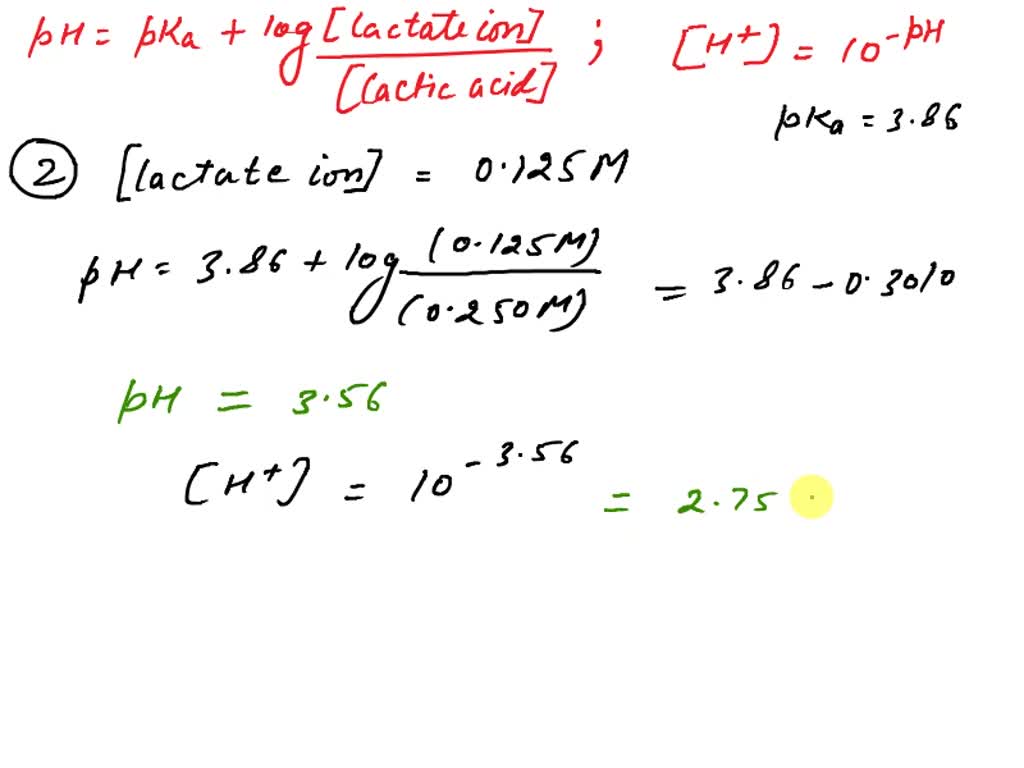 pH = pKa + log [lactate ion] / [lactic acid] ; [H+] = 10^-pH
pKa = 3.86
② [lactate ion] = 0.125M
pH = 3.86 + log (0.125M) / (0.250M) = 3.86 - 0.3010
pH = 3.56
[H+] = 10^-3.56 = 2.75